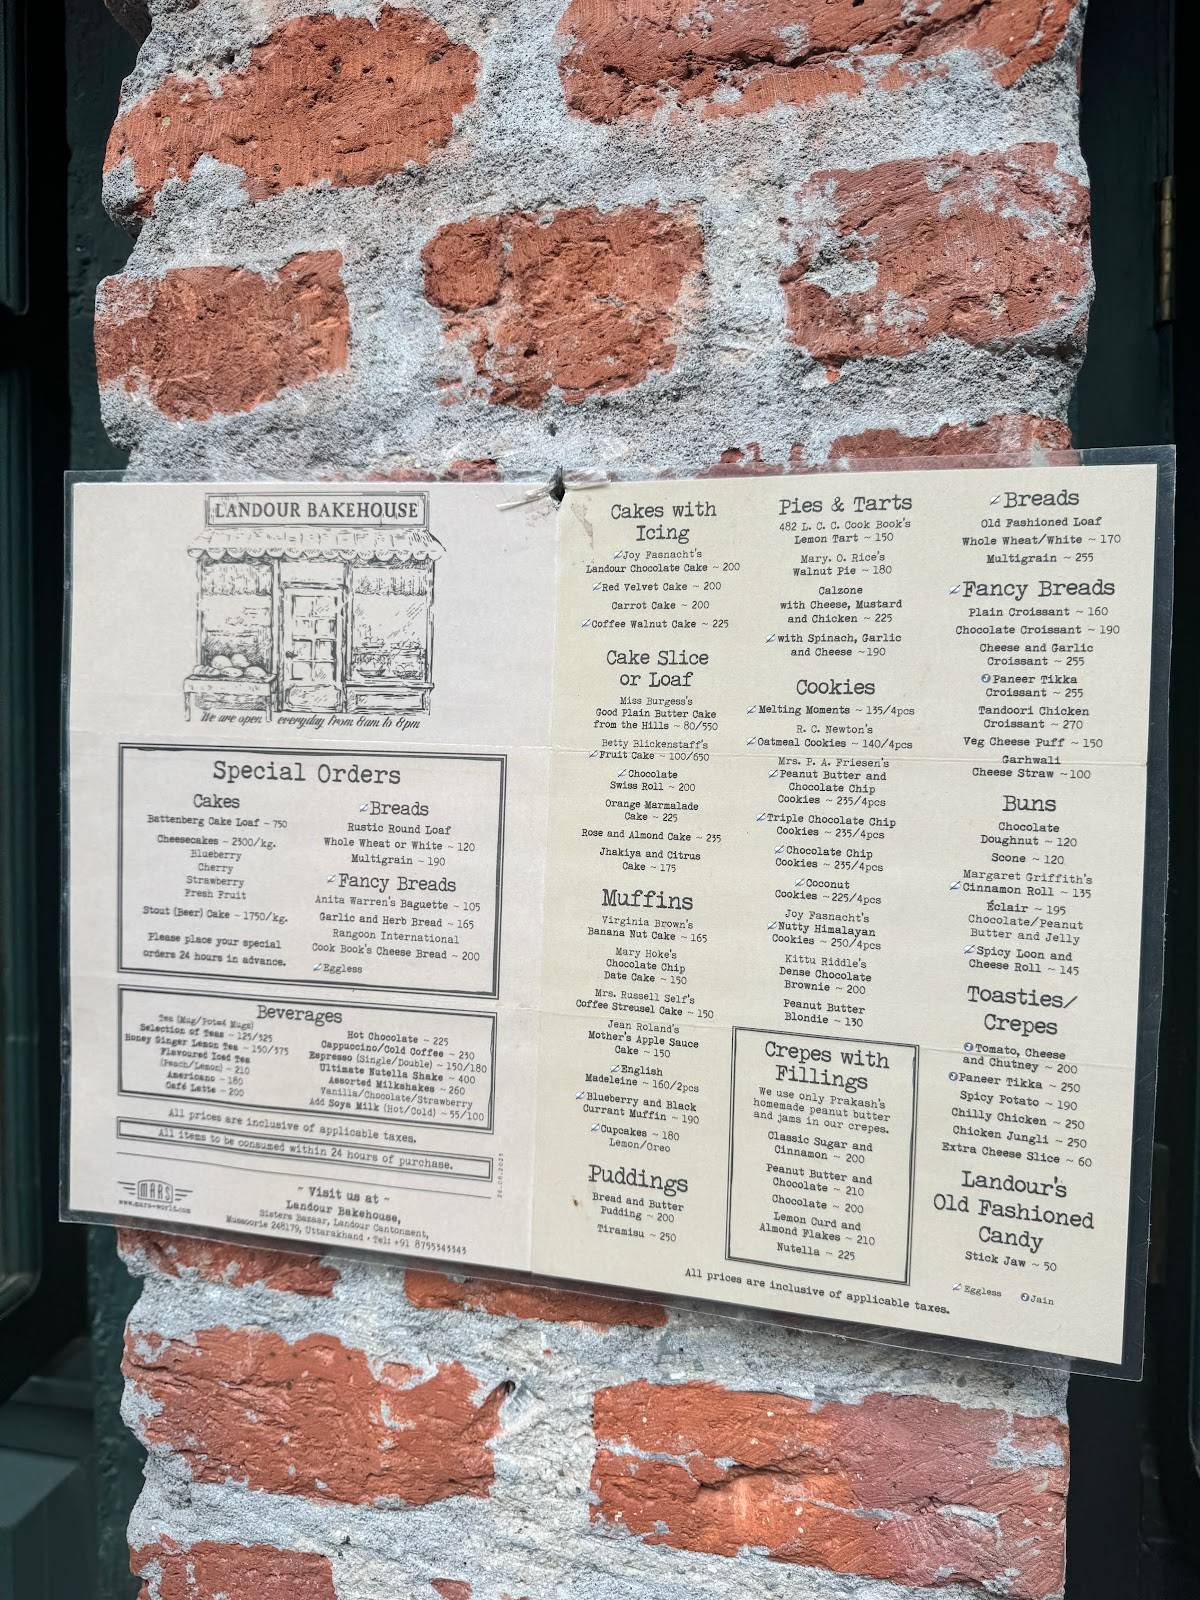 LANDOUR BAKEHOUSE
We are open everyday from 8am to 8pm
Special Orders
Cakes
Battenberg Cake Loaf ~ 750
Cheesecakes ~ 2300/kg.
Blueberry
Cherry
Strawberry
Fresh Fruit
Stout (Beer) Cake ~ 1750/kg.
Please place your special
orders 24 hours in advance.
Breads
Rustic Round Loaf
Whole Wheat or White ~ 120
Multigrain ~ 190
Fancy Breads
Anita Warren's Baguette ~ 105
Garlic and Herb Bread ~ 165
Rangoon International
Cook Book's Cheese Bread ~ 200
Eggless
Beverages
Tea (Mug/Poted Mugs)
Selection of Teas ~ 125/325
Honey Ginger Lemon Tea ~ 150/375
Flavoured Iced Tea
(Peach/Lemon) ~ 210
Americano ~ 180
Café Latte ~ 200
Hot Chocolate ~ 225
Cappuccino/Cold Coffee ~ 230
Espresso (Single/Double) ~ 150/180
Ultimate Nutella Shake ~ 400
Assorted Milkshakes ~ 260
Vanilla/Chocolate/Strawberry
Add Soya Milk (Hot/Cold) ~ 55/100
All prices are inclusive of applicable taxes.
All items to be consumed within 24 hours of purchase.
MARS
www.mars-world.com
~ Visit us at ~
Landour Bakehouse,
Sisters Bazaar, Landour Cantonment,
Mussoorie 248179, Uttarakhand · Tel: +91 8755343343
Cakes with
Icing
Joy Fasnacht's
Landour Chocolate Cake ~ 200
Red Velvet Cake ~ 200
Carrot Cake ~ 200
Coffee Walnut Cake ~ 225
Cake Slice
or Loaf
Miss Burgess's
Good Plain Butter Cake
from the Hills ~ 80/550
Betty Blickenstaff's
Fruit Cake ~ 100/650
Chocolate
Swiss Roll ~ 200
Orange Marmalade
Cake ~ 225
Rose and Almond Cake ~ 235
Jhakiya and Citrus
Cake ~ 175
Muffins
Virginia Brown's
Banana Nut Cake ~ 165
Mary Hoke's
Chocolate Chip
Date Cake ~ 150
Mrs. Russell Self's
Coffee Streusel Cake ~ 150
Jean Roland's
Mother's Apple Sauce
Cake ~ 150
English
Madeleine ~ 160/2pcs
Blueberry and Black
Currant Muffin ~ 190
Cupcakes ~ 180
Lemon/Oreo
Puddings
Bread and Butter
Pudding ~ 200
Tiramisu ~ 250
Pies & Tarts
482 L. C. C. Cook Book's
Lemon Tart ~ 150
Mary. O. Rice's
Walnut Pie ~ 180
Calzone
with Cheese, Mustard
and Chicken ~ 225
with Spinach, Garlic
and Cheese ~190
Cookies
Melting Moments ~ 135/4pcs
R. C. Newton's
Oatmeal Cookies ~ 140/4pcs
Mrs. P. A. Friesen's
Peanut Butter and
Chocolate Chip
Cookies ~ 235/4pcs
Triple Chocolate Chip
Cookies ~ 235/4pcs
Chocolate Chip
Cookies ~ 235/4pcs
Coconut
Cookies ~225/4pcs
Joy Fasnacht's
Nutty Himalayan
Cookies ~ 250/4pcs
Kittu Riddle's
Dense Chocolate
Brownie ~ 200
Peanut Butter
Blondie ~ 130
Crepes with
Fillings
We use only Prakash's
homemade peanut butter
and jams in our crepes.
Classic Sugar and
Cinnamon ~ 200
Peanut Butter and
Chocolate ~ 210
Chocolate ~ 200
Lemon Curd and
Almond Flakes ~ 210
Nutella ~ 225
All prices are inclusive of applicable taxes.
Breads
Old Fashioned Loaf
Whole Wheat/White ~ 170
Multigrain ~ 255
Fancy Breads
Plain Croissant ~ 160
Chocolate Croissant ~ 190
Cheese and Garlic
Croissant ~ 255
J Paneer Tikka
Croissant ~ 255
Tandoori Chicken
Croissant ~ 270
Veg Cheese Puff ~ 150
Garhwali
Cheese Straw ~100
Buns
Chocolate
Doughnut ~ 120
Scone ~ 120
Margaret Griffith's
Cinnamon Roll ~ 135
Éclair ~ 195
Chocolate/Peanut
Butter and Jelly
Spicy Loon and
Cheese Roll ~ 145
Toasties/
Crepes
J Tomato, Cheese
and Chutney ~ 200
J Paneer Tikka ~ 250
Spicy Potato ~ 190
Chilly Chicken ~ 250
Chicken Jungli ~ 250
Extra Cheese Slice ~ 60
Landour's
Old Fashioned
Candy
Stick Jaw ~ 50
Eggless J Jain